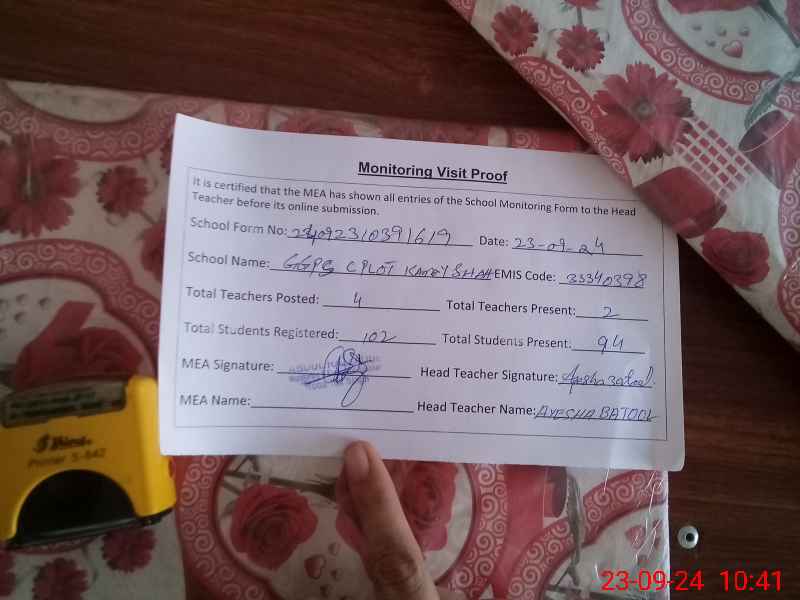 Monitoring Visit Proof
It is certified that the MEA has shown all entries of the School Monitoring Form to the Head
Teacher before its online submission.
School Form No: 2409231039 1619 Date: 23-09-24
School Name: GGPS CPLOT KAREY SHAH EMIS Code: 33340398
Total Teachers Posted: 4 Total Teachers Present: 2
Total Students Registered: 102 Total Students Present: 94
MEA Signature: Head Teacher Signature: Ayesha Batool.
MEA Name: Head Teacher Name: AYESHA BATOOL
Shiny
Printer S-842
23-09-24 10:41